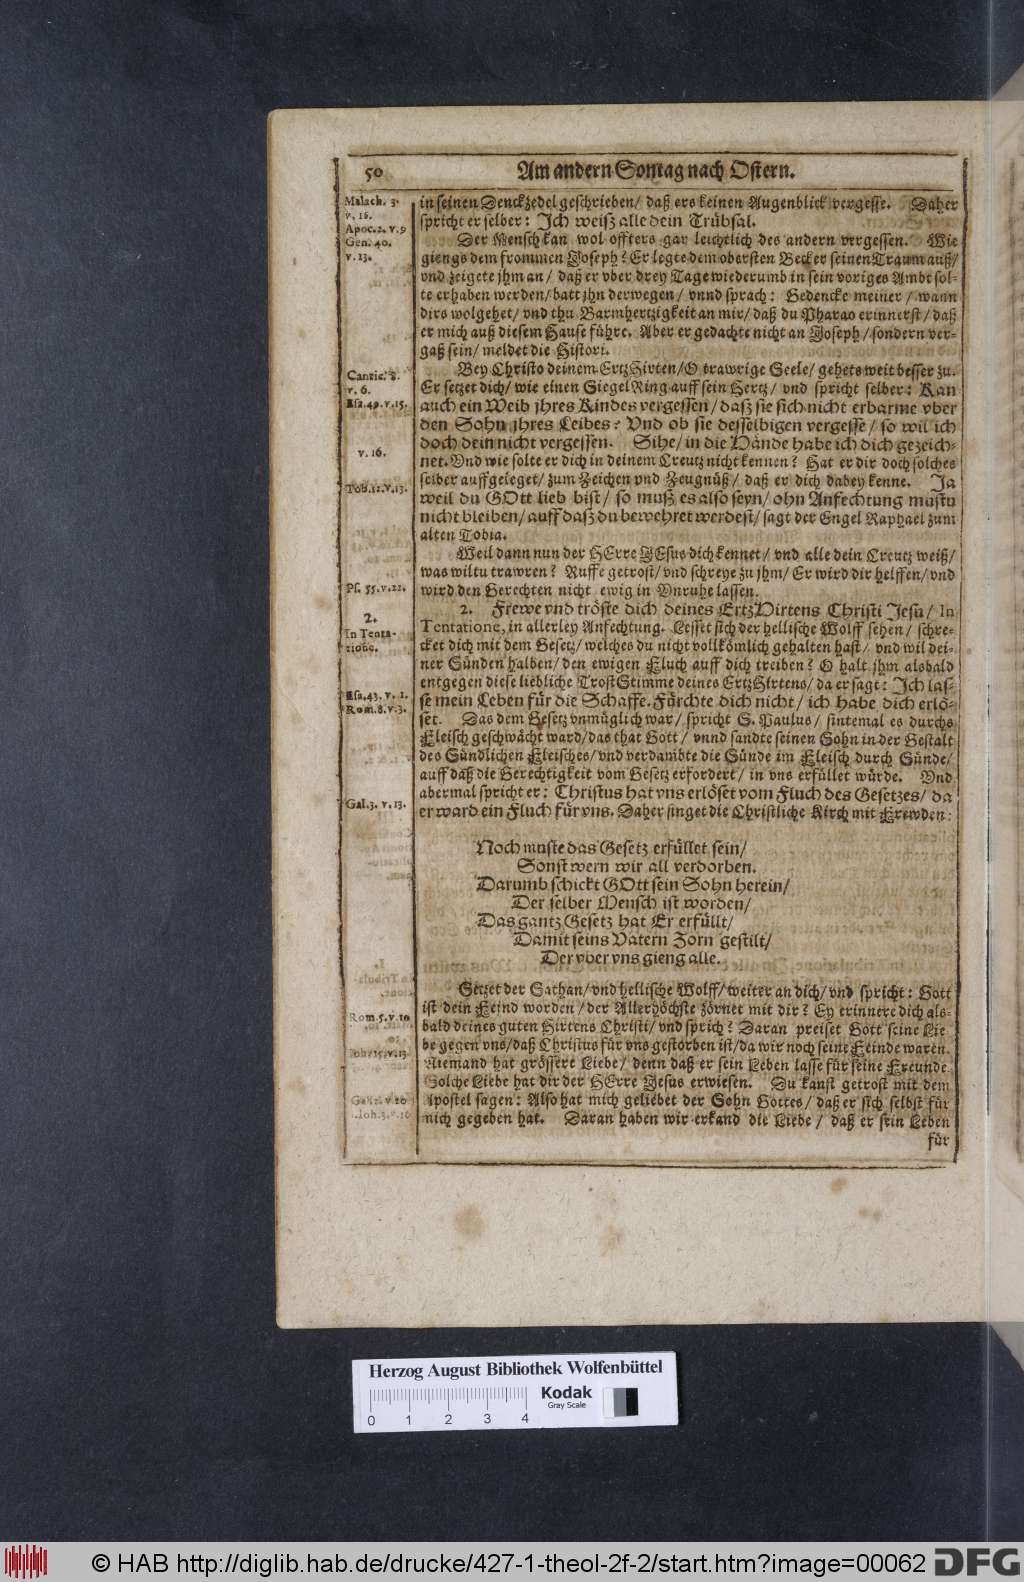 50
Am andern Sontag nach Ostern.
Malach. 3.
v. 16.
Apoc. 2. v. 9
Gen. 40.
v. 13.
Cantic. 8.
v. 6.
Esa. 49. v. 15.
v. 16.
Tob. 12. v. 13.
Ps. 55. v. 22.
2.
In Tenta-
tione.
Esa. 43. v. 1.
Rom. 8. v. 3.
Gal. 3. v. 13.
Rom. 5. v. 10
Joh. 15. v. 13
Gal. 2. v. 20
1. Joh. 3. v. 16
in seinen Denckzedel geschrieben/ daß ers keinen Augenblick vergesse. Daher
spricht er selber: Ich weiß alle dein Trübsal.
Der Mensch kan wol offters gar leichtlich des andern vergessen. Wie
giengs dem frommen Joseph? Er legte dem obersten Becker seinen Traum auß/
vnd zeigete jhm an/ daß er vber drey Tage wiederumb in sein voriges Ambt sol-
te erhaben werden/ batt jhn derwegen/ vnnd sprach: Gedencke meiner/ wann
dirs wolgehet/ vnd thu Barmhertzigkeit an mir/ daß du Pharao erinnerst/ daß
er mich auß diesem Hause führe. Aber er gedachte nicht an Joseph/ sondern ver-
gaß sein/ meldet die Histori.
Bey Christo deinem ErtzHirten/ O trawrige Seele/ gehets weit besser zu.
Er setzet dich/ wie einen SiegelRing auff sein Hertz/ vnd spricht selber: Kan
auch ein Weib jhres Kindes vergessen/ daß sie sich nicht erbarme vber
den Sohn jhres Leibes? Vnd ob sie desselbigen vergesse/ so wil ich
doch dein nicht vergessen. Sihe/ in die Hände habe ich dich gezeich-
net. Vnd wie solte er dich in deinem Creutz nicht kennen? Hat er dir doch solches
selber auffgeleget/ zum Zeichen vnd Zeugnüß/ daß er dich dabey kenne. Ja
weil du GOtt lieb bist/ so muß es also seyn/ ohn Anfechtung mustu
nicht bleiben/ auff daß du bewehret werdest/ sagt der Engel Raphael zum
alten Tobia.
Weil dann nun der HErre JEsus dich kennet/ vnd alle dein Creutz weiß/
was wiltu trawren? Ruffe getrost/ vnd schreye zu jhm/ Er wird dir helffen/ vnd
wird den Gerechten nicht ewig in Vnruhe lassen.
2. Frewe vnd tröste dich deines ErtzHirtens Christi Jesu/ In
Tentatione, in allerley Anfechtung. Lesset sich der hellische Wolff sehen/ schre-
cket dich mit dem Gesetz/ welches du nicht vollkömlich gehalten hast/ vnd wil dei-
ner Sünden halben/ den ewigen Fluch auff dich treiben? O halt jhm alsbald
entgegen diese liebliche TrostStimme deines ErtzHirtens/ da er sagt: Ich las-
se mein Leben für die Schaffe. Fürchte dich nicht/ ich habe dich erlö-
set. Das dem Gesetz vnmüglich war/ spricht S. Paulus/ sintemal es durchs
Fleisch geschwächt ward/ das that Gott/ vnnd sandte seinen Sohn in der Gestalt
des Sündlichen Fleisches/ vnd verdambte die Sünde im Fleisch durch Sünde/
auff daß die Gerechtigkeit vom Gesetz erfordert/ in vns erfüllet würde. Vnd
abermal spricht er: Christus hat vns erlöset vom Fluch des Gesetzes/ da
er ward ein Fluch für vns. Daher singet die Christliche Kirch mit Frewden:
Noch muste das Gesetz erfüllet sein/
Sonst wern wir all verdorben.
Darumb schickt GOtt sein Sohn herein/
Der selber Mensch ist worden/
Das gantz Gesetz hat Er erfüllt/
Damit seins Vatern Zorn gestilt/
Der vber vns gieng alle.
Setzet der Sathan/ vnd hellische Wolff/ weiter an dich/ vnd spricht: Gott
ist dein Feind worden/ der Allerhöchste zörnet mit dir? Ey erinnere dich als-
bald deines guten Hirtens Christi/ vnd sprich? Daran preiset Gott seine Lie
be gegen vns/ daß Christus für vns gestorben ist/ da wir noch seine Feinde waren.
Niemand hat grössere Liebe/ denn daß er sein Leben lasse für seine Freunde
Solche Liebe hat dir der HErre Jesus erwiesen. Du kanst getrost mit dem
Apostel sagen: Also hat mich geliebet der Sohn Gottes/ daß er sich selbst für
mich gegeben hat. Daran haben wir erkand die Liebe/ daß er sein Leben
für
Herzog August Bibliothek Wolfenbüttel
Kodak
Gray Scale
0 1 2 3 4
© HAB http://diglib.hab.de/drucke/427-1-theol-2f-2/start.htm?image=00062
DFG